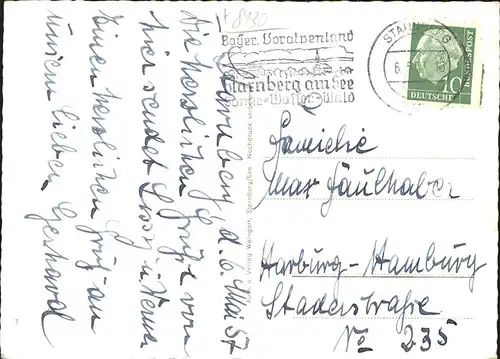 + 8130
Bayer. Voralpenland
Starnberg am See
Sonne-Wasser-Wald
STARNBERG
6.
10
DEUTSCHE
BUNDESPOST
Starnberg, d. 6. Mai 57
Die herzlichsten Grüße von
hier sendet
Einen herzlichen Gruß an
unsern lieben Gerhard
Verlag Weingart, Starnberg/See Nachdruck
Familie
Max Faulhaber
Harburg-Hamburg
Staderstraße
No 235